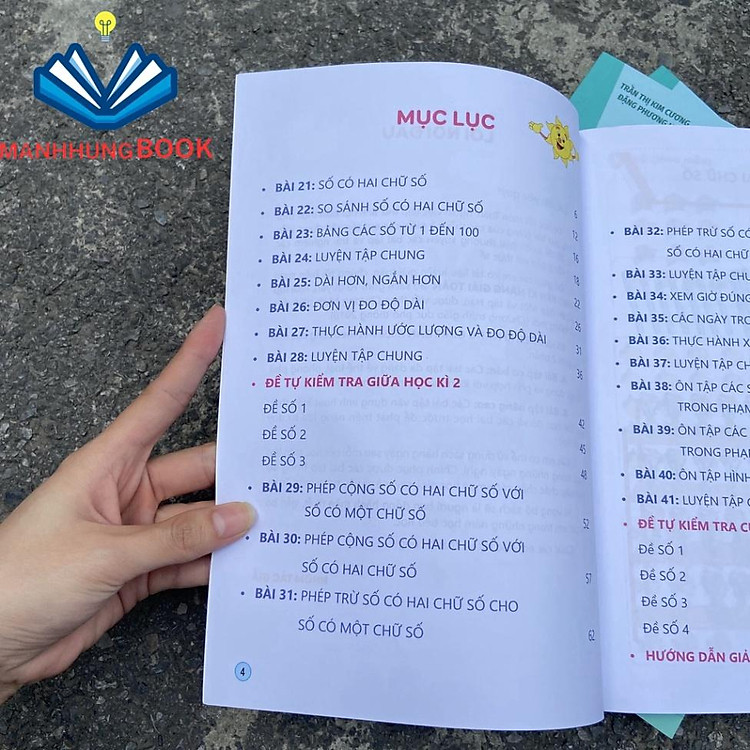 MANHHUNGBOOK
TRẦN THỊ KIM CƯƠNG
ĐẶNG PHƯƠNG
MỤC LỤC
• BÀI 21: SỐ CÓ HAI CHỮ SỐ 6
• BÀI 22: SO SÁNH SỐ CÓ HAI CHỮ SỐ 12
• BÀI 23: BẢNG CÁC SỐ TỪ 1 ĐẾN 100 16
• BÀI 24: LUYỆN TẬP CHUNG 18
• BÀI 25: DÀI HƠN, NGẮN HƠN 22
• BÀI 26: ĐƠN VỊ ĐO ĐỘ DÀI 26
• BÀI 27: THỰC HÀNH ƯỚC LƯỢNG VÀ ĐO ĐỘ DÀI 31
• BÀI 28: LUYỆN TẬP CHUNG 36
• ĐỀ TỰ KIỂM TRA GIỮA HỌC KÌ 2
ĐỀ SỐ 1 42
ĐỀ SỐ 2 45
ĐỀ SỐ 3 48
• BÀI 29: PHÉP CỘNG SỐ CÓ HAI CHỮ SỐ VỚI
SỐ CÓ MỘT CHỮ SỐ 52
• BÀI 30: PHÉP CỘNG SỐ CÓ HAI CHỮ SỐ VỚI
SỐ CÓ HAI CHỮ SỐ 57
• BÀI 31: PHÉP TRỪ SỐ CÓ HAI CHỮ SỐ CHO
SỐ CÓ MỘT CHỮ SỐ 62
4
• BÀI 32: PHÉP TRỪ SỐ CÓ
SỐ CÓ HAI CHỮ
• BÀI 33: LUYỆN TẬP CHU
• BÀI 34: XEM GIỜ ĐÚNG
• BÀI 35: CÁC NGÀY TRO
• BÀI 36: THỰC HÀNH X
• BÀI 37: LUYỆN TẬP CH
• BÀI 38: ÔN TẬP CÁC S
TRONG PHẠM
• BÀI 39: ÔN TẬP CÁC
TRONG PHẠ
• BÀI 40: ÔN TẬP HÌNH
• BÀI 41: LUYỆN TẬP C
• ĐỀ TỰ KIỂM TRA CU
Đề SỐ 1
Đề SỐ 2
Đề SỐ 3
Đề SỐ 4
• HƯỚNG DẪN GIẢ